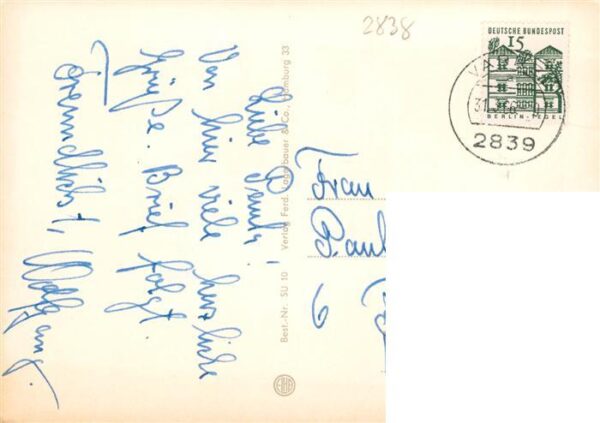 2838
DEUTSCHE BUNDESPOST
15
BERLIN-TEGEL
VA
31.
2839
Liebe
Von hier viele herzliche
Grüße. Brief folgt
Freundlichst,
Wolfgang.
Best.-Nr. SU 10 Verlag Ferd. Lagerbauer & Co., Hamburg 33
Frau
Paul
6